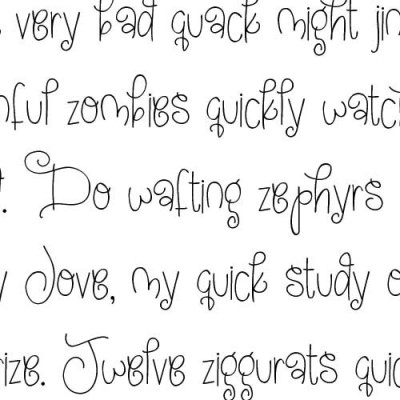 very bad quack might jin
nful zombies quickly watch
. Do wafting zephyrs
y Jove, my quick study o
rize. Twelve ziggurats quic